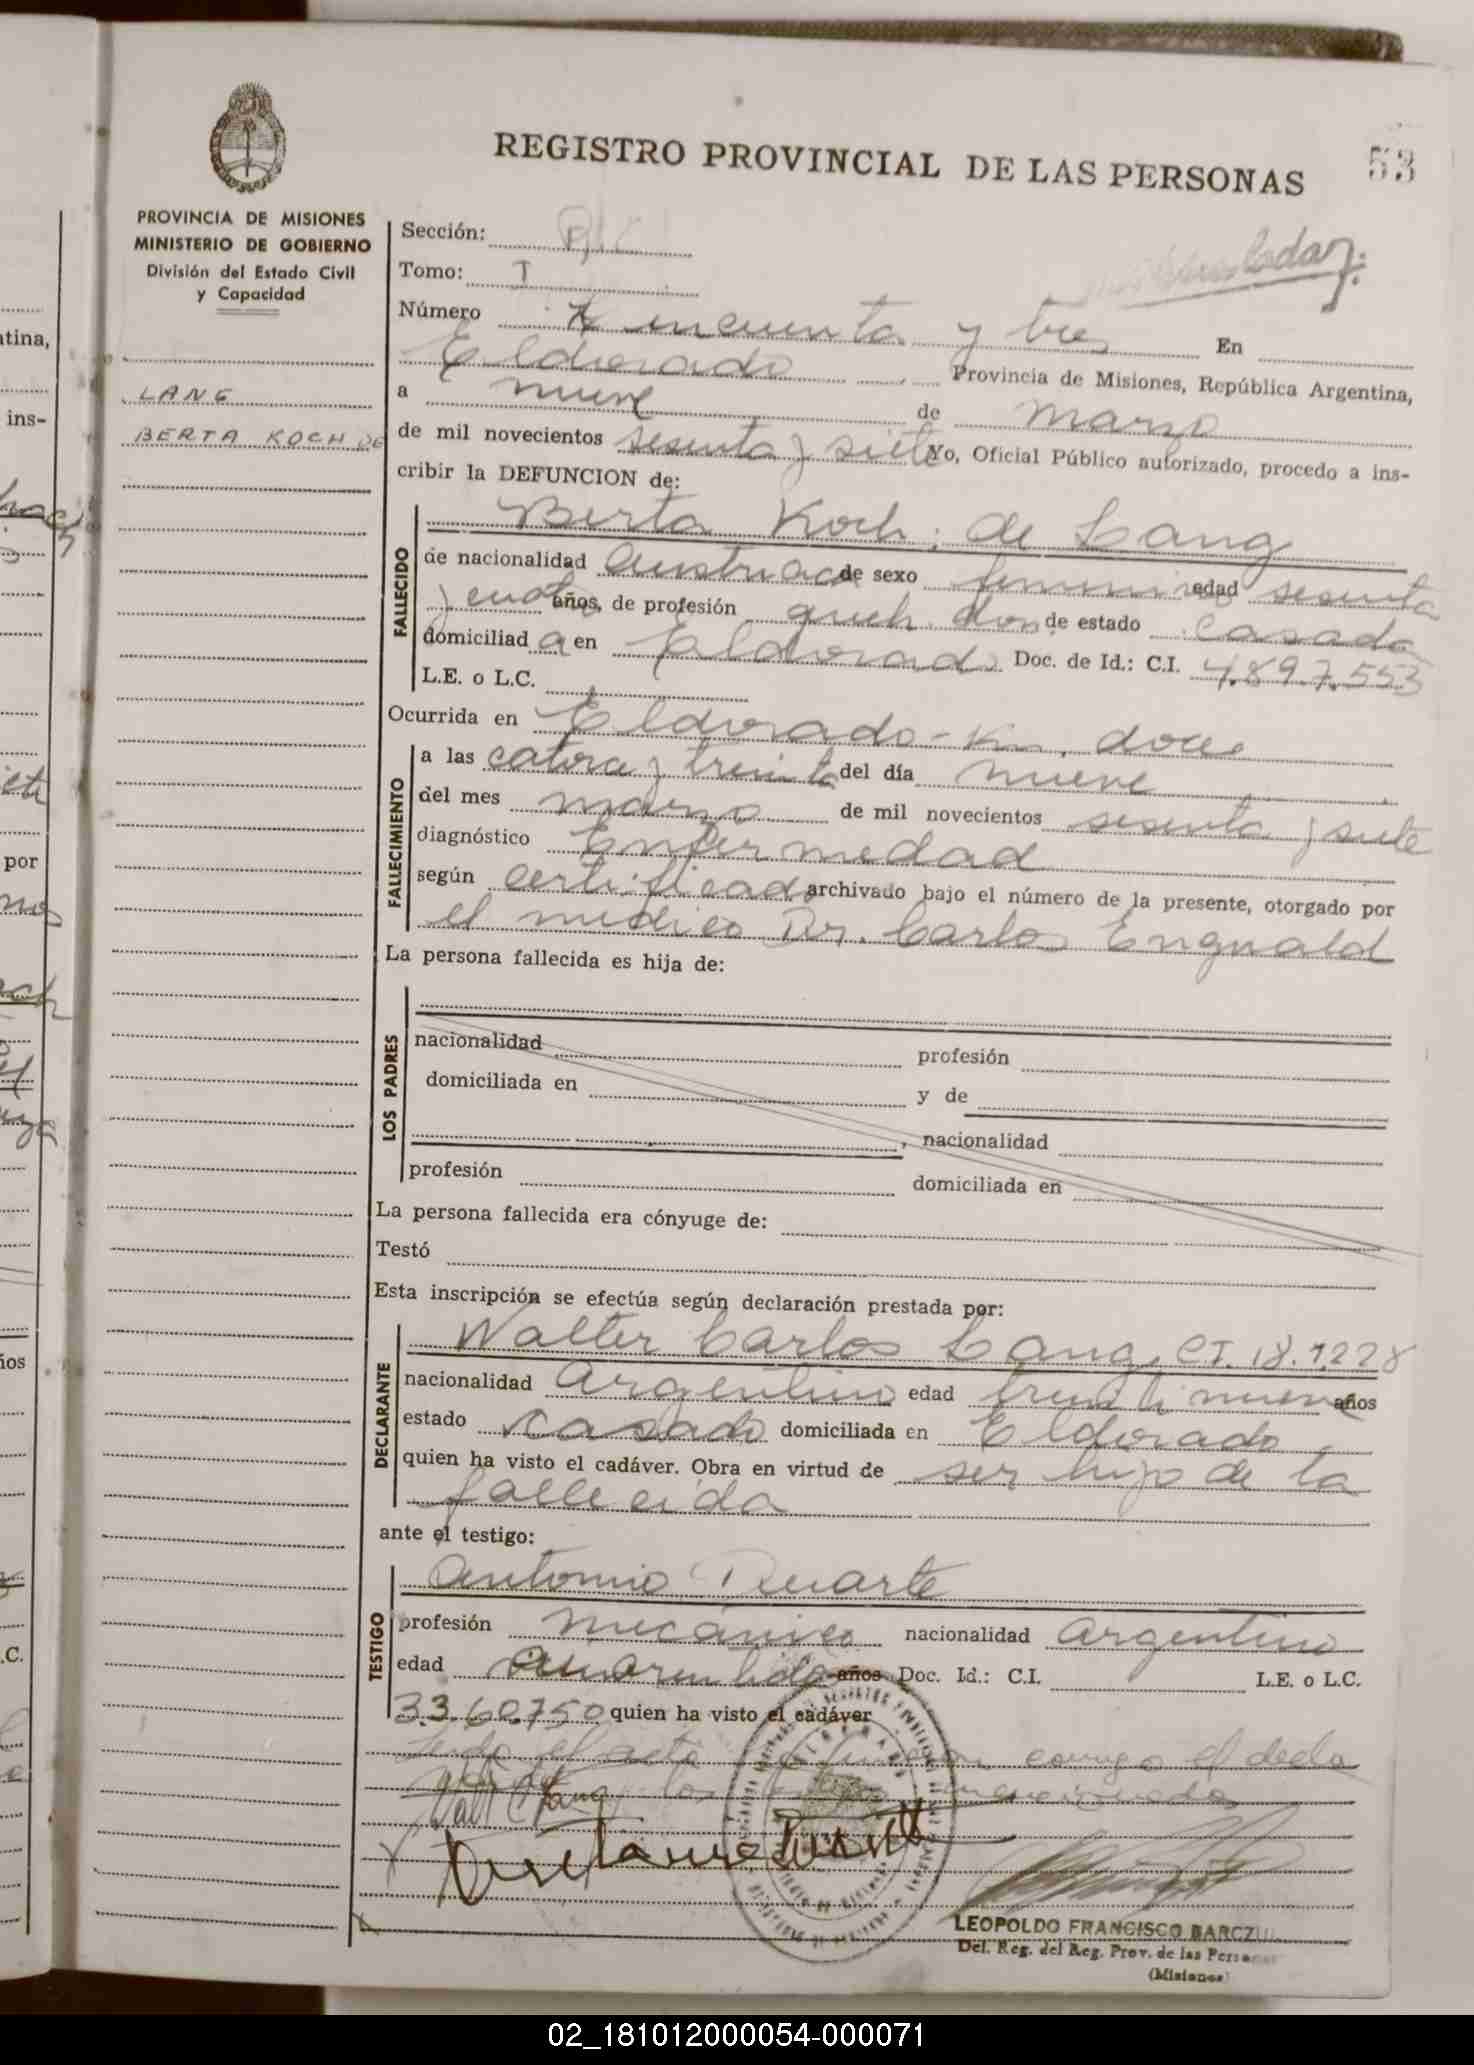 REGISTRO PROVINCIAL DE LAS PERSONAS
53
PROVINCIA DE MISIONES
MINISTERIO DE GOBIERNO
División del Estado Civil
y Capacidad
LANG
BERTA KOCH DE
Sección:
Tomo: I
Número cincuenta y tres En
Eldorado Provincia de Misiones, República Argentina,
a nueve de marzo
de mil novecientos sesenta y siete Yo, Oficial Público autorizado, procedo a ins-
cribir la DEFUNCION de:
FALLECIDO
Berta Koch de Lang
de nacionalidad Austriaca de sexo femenino edad sesenta
y cuatro años, de profesión queh. dom. de estado casada
domiciliad a en Eldorado Doc. de Id.: C.I. 4.897.553
L.E. o L.C.
Ocurrida en Eldorado - Km. doce
FALLECIMIENTO
a las catorce y treinta del día nueve
del mes marzo de mil novecientos sesenta y siete
diagnóstico Enfermedad
según certificado archivado bajo el número de la presente, otorgado por
el medico Dr. Carlos Enguald
La persona fallecida es hija de:
LOS PADRES
nacionalidad profesión
domiciliada en y de
, nacionalidad
profesión domiciliada en
La persona fallecida era cónyuge de:
Testó
Esta inscripción se efectúa según declaración prestada por:
DECLARANTE
Walter Carlos Lang, CI. 18.1228
nacionalidad Argentino edad treintinueve años
estado casado domiciliada en Eldorado
quien ha visto el cadáver. Obra en virtud de ser hijo de la
fallecida
ante el testigo:
TESTIGO
Antonio Duarte
profesión mecánico nacionalidad Argentino
edad años Doc. Id.: C.I. L.E. o L.C.
3.360.750 quien ha visto el cadáver
el acta firman conmigo el decla
mencionados
LEOPOLDO FRANCISCO BARCZU
Del. Reg. del Reg. Prov. de las Personas
(Misiones)
02_181012000054-000071